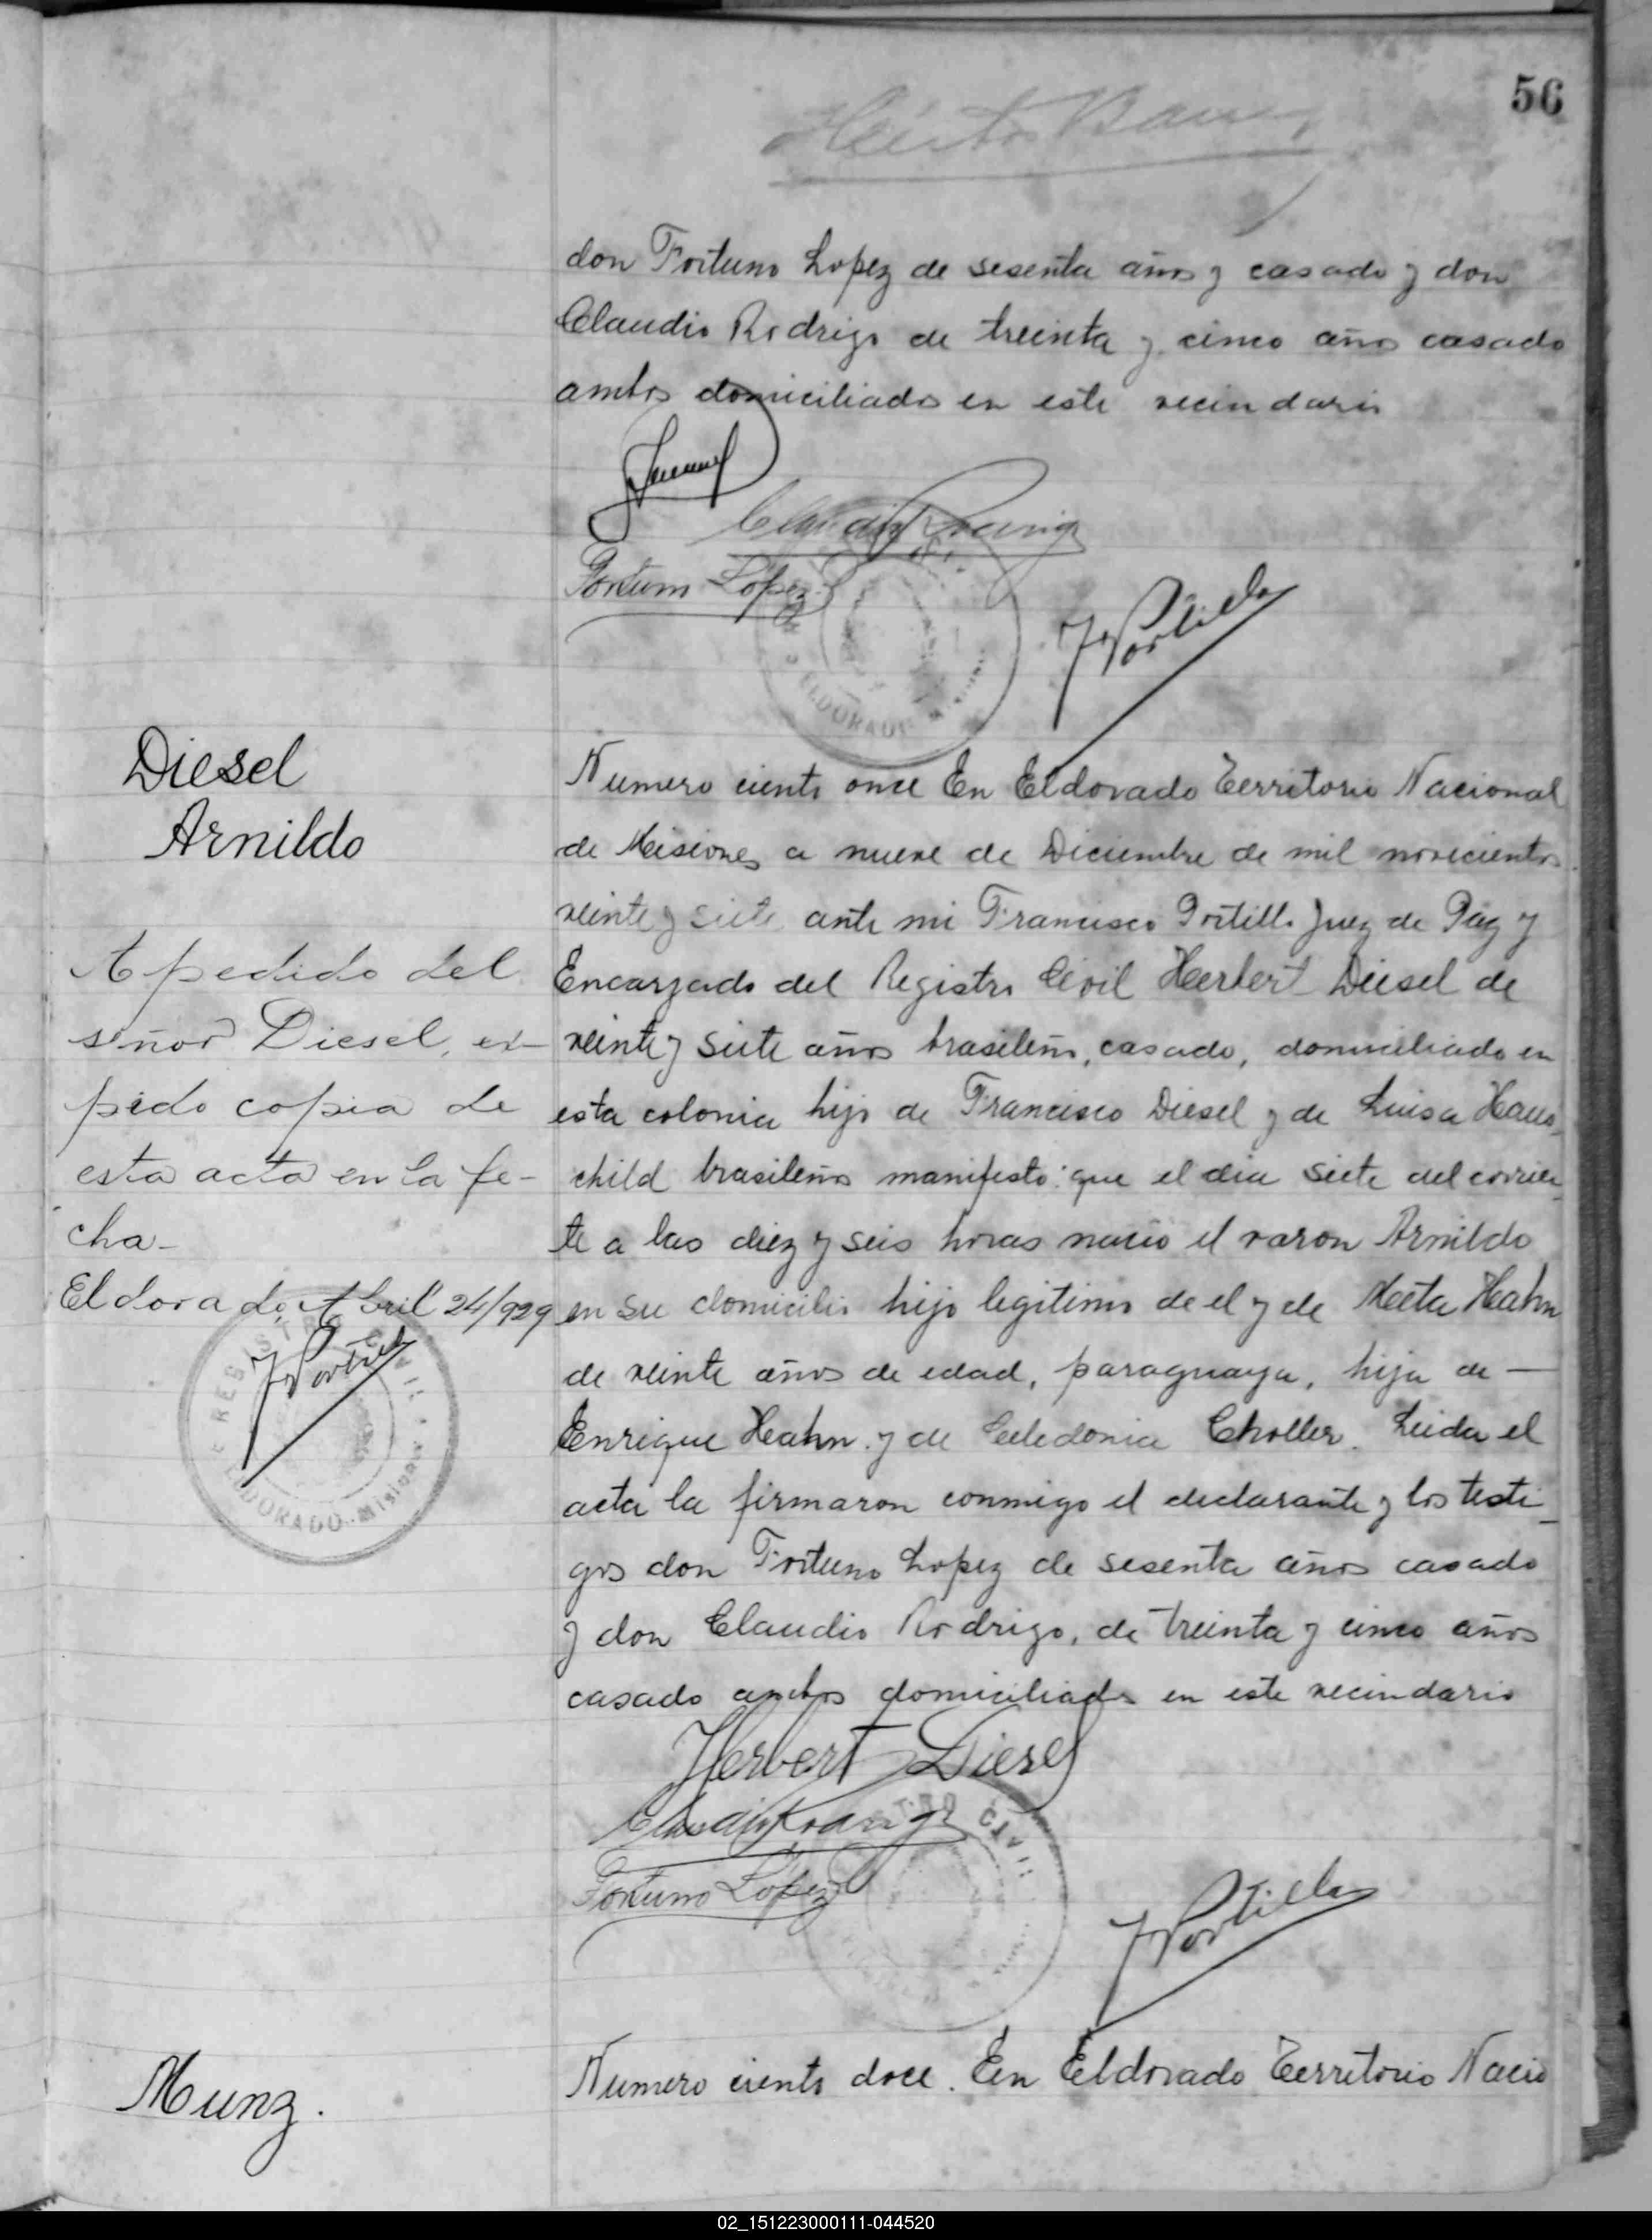 56
don Fortuno Lopez de sesenta años y casado y don
Claudio Rodrigo de treinta y cinco años casado
ambos domiciliados en este vecindario
Claudio Rodrigo
Fortuno López
ELDORADO
FPortillo
Diesel
Arnildo
Numero ciento once En Eldorado Territorio Nacional
de Misiones a nueve de Diciembre de mil novecientos
veinte y siete ante mi Francisco Portillo Juez de Paz y
Encargado del Registro Civil Herbert Diesel de
veinte y siete años brasileño, casado, domiciliado en
esta colonia hijo de Francisco Diesel y de Luisa Haus
child brasileños manifesto: que el dia siete del corrien
te a las diez y seis horas nacio el varon Arnildo
en su domicilio hijo legitimo de el y de Meta Hahn
de veinte años de edad, paraguaya, hija de —
Enrique Hahn y de Celedonia Choller. Leida el
acta la firmaron conmigo el declarante y los testi_
gos don Fortuno Lopez de sesenta años casado
y don Claudio Rodrigo, de treinta y cinco años
casado ambos domiciliados en este vecindario
A pedido del
señor Diesel, ex-
pido copia de
esta acta en la fe-
cha-
Eldorado, Abril 24/929
FPortillo
REGISTRO CIVIL
ELDORADO - Misiones
Herbert Diesel
Claudio Rodrigo
Fortuno López
REGISTRO CIVIL
FPortillo
Munz.
Numero ciento doce. En Eldorado Territorio Nacio
02_151223000111-044520